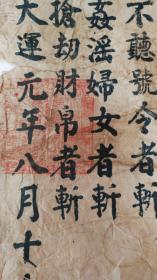 不聽號令者斬
姦淫婦女者斬
搶劫財帛者斬
大運元年八月十